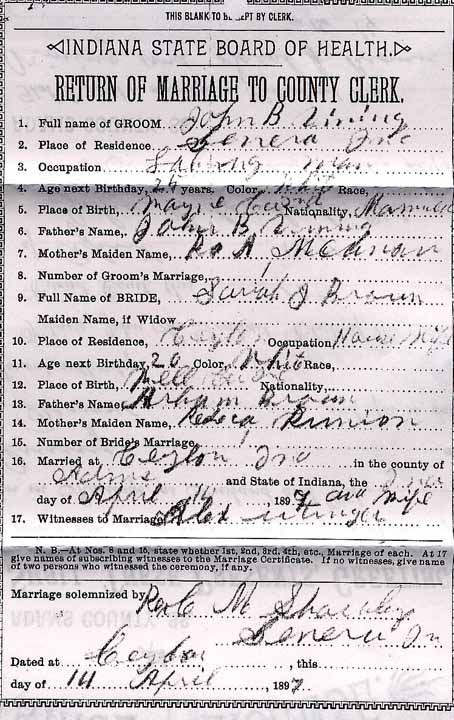 THIS BLANK TO BE KEPT BY CLERK.
INDIANA STATE BOARD OF HEALTH.
RETURN OF MARRIAGE TO COUNTY CLERK.
1. Full name of GROOM John B
2. Place of Residence Geneva Ind
3. Occupation man
4. Age next Birthday, years. Color, White Race,
5. Place of Birth, Nationality,
6. Father's Name, John B
7. Mother's Maiden Name,
8. Number of Groom's Marriage, 1
9. Full Name of BRIDE, Sarah J Brown
Maiden Name, if Widow
10. Place of Residence, Ceylon Occupation House Wife
11. Age next Birthday 20 Color, White Race,
12. Place of Birth, Nationality,
13. Father's Name Brown
14. Mother's Maiden Name, Runion
15. Number of Bride's Marriage
16. Married at Ceylon Ind in the county of
Adams and State of Indiana, the
day of April 14 1897 and Wife
17. Witnesses to Marriage Alex
N. B.—At Nos. 8 and 15, state whether 1st, 2nd, 3rd, 4th, etc., Marriage of each. At 17
give names of subscribing witnesses to the Marriage Certificate. If no witnesses, give name
of two persons who witnessed the ceremony, if any.
Marriage solemnized by Rev C M
Geneva In
Dated at Ceylon , this
day of 14 April , 1897.